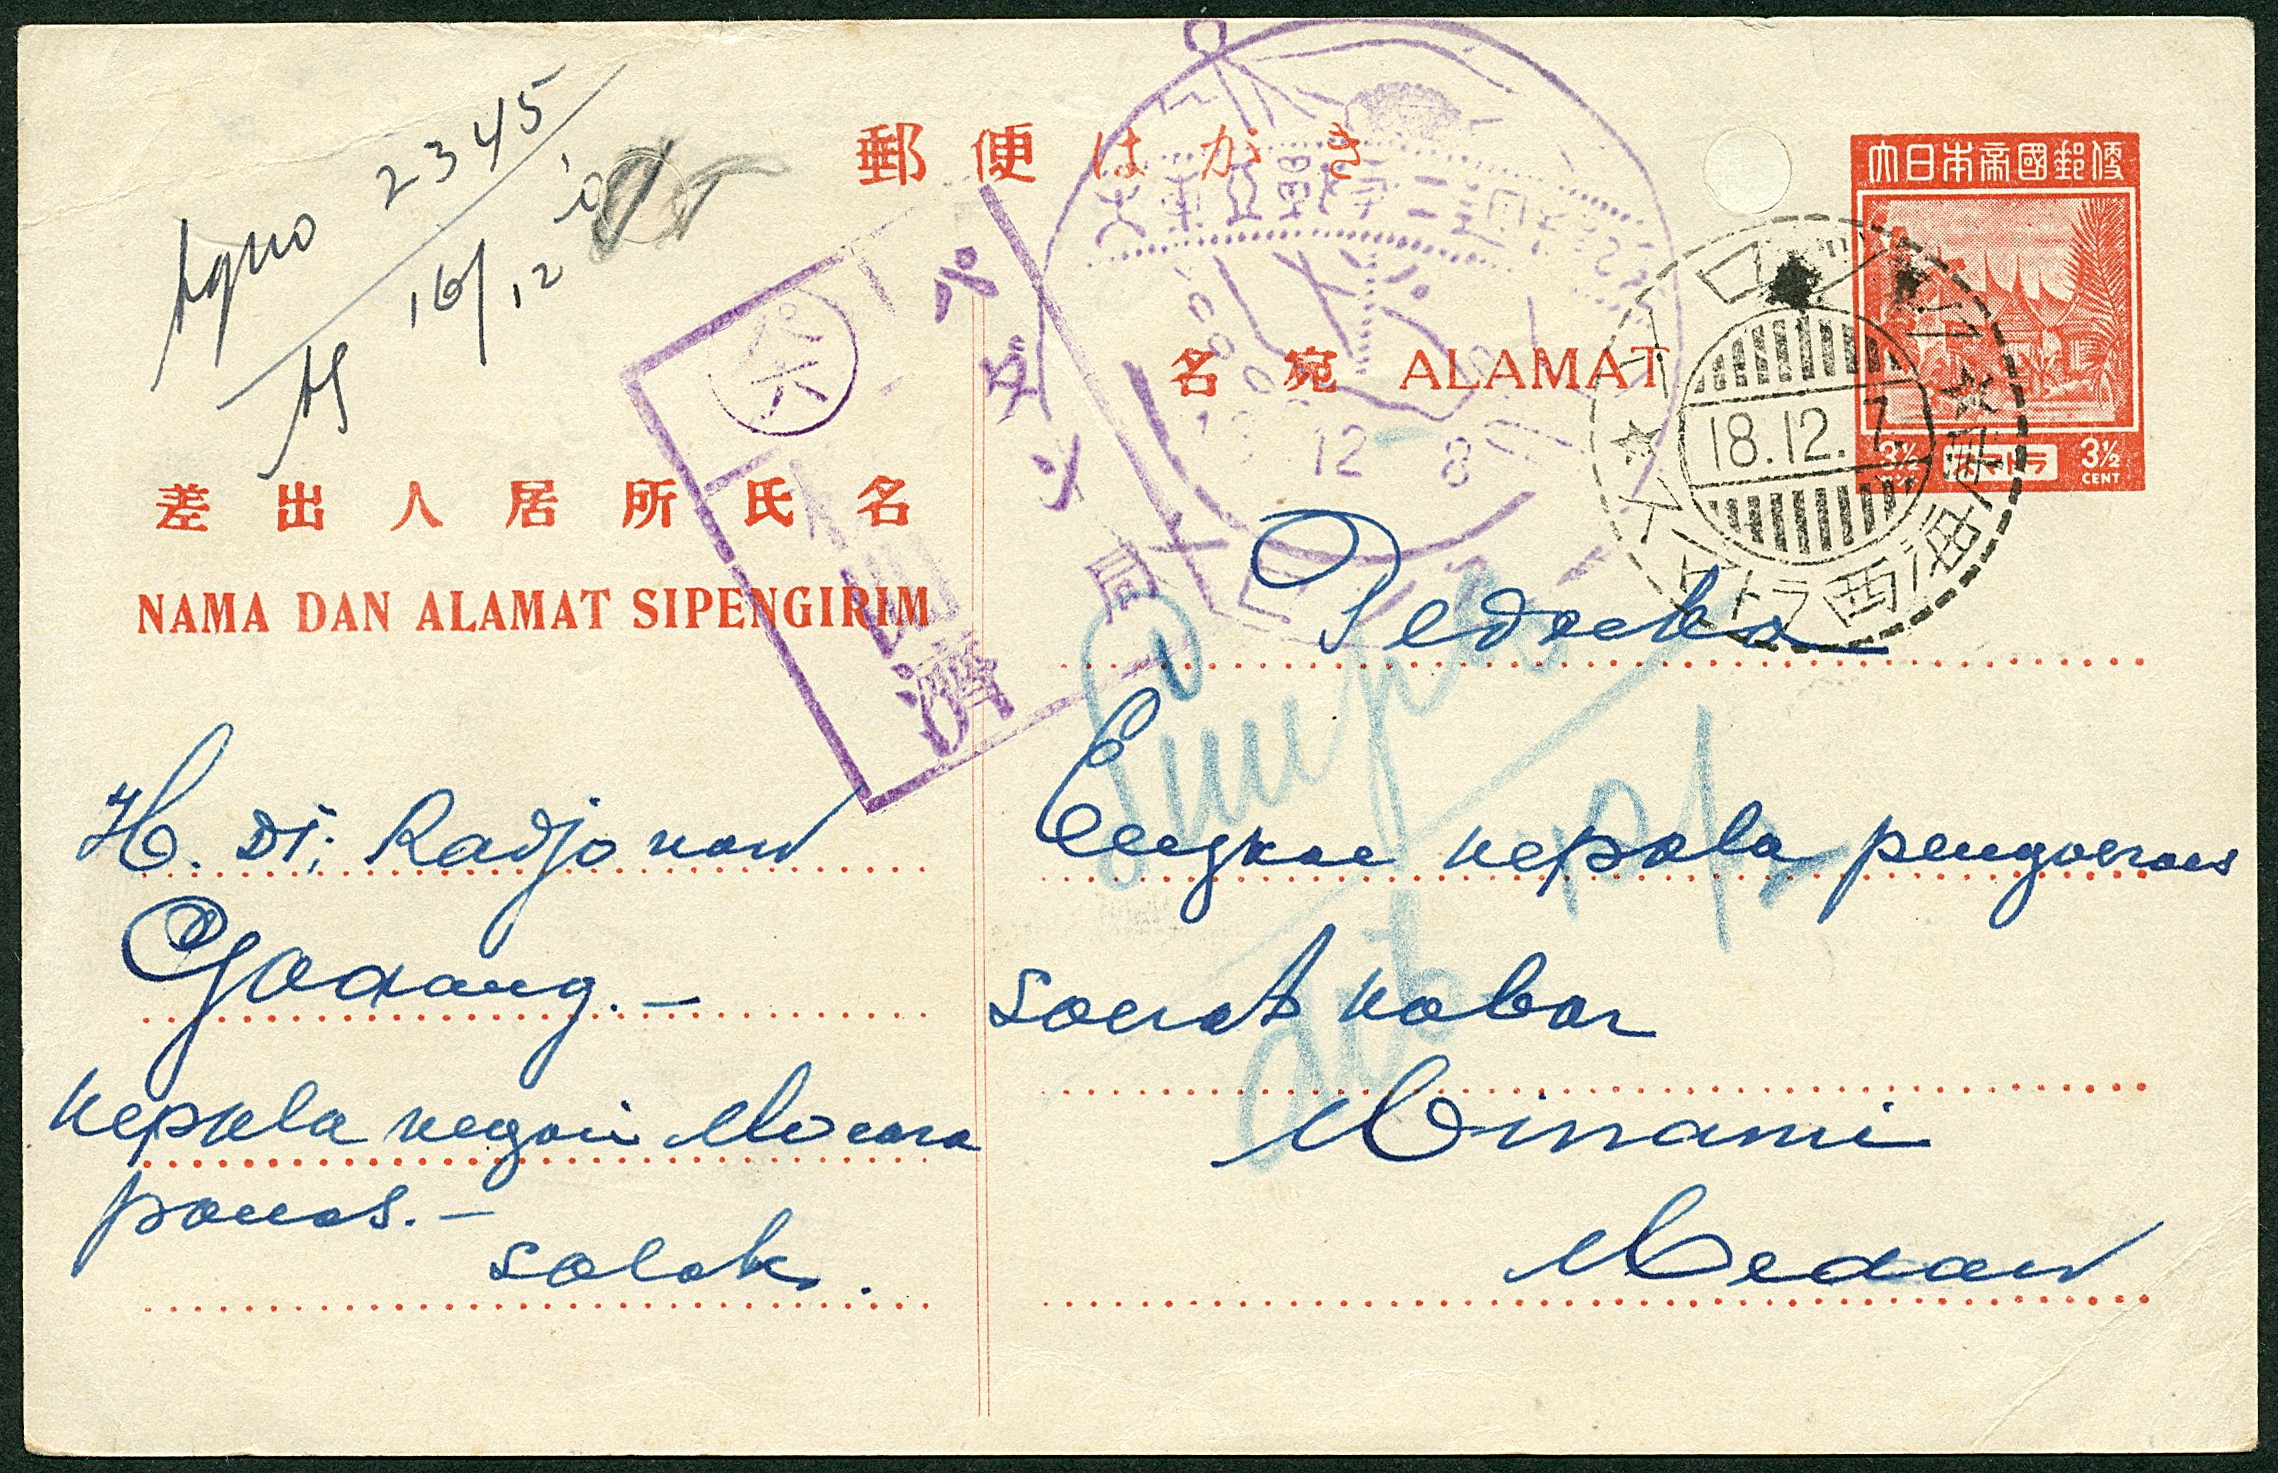 郵便はがき
大日本帝國郵便
3½ CENT スマトラ 3½ CENT
Agno 2345
16/12
パダン
検閲濟
大東亞戰爭二周年
12 8
18.12.7
スマトラ西海岸
名宛 ALAMAT
差出人居所氏名
NAMA DAN ALAMAT SIPENGIRIM
H. Dt; Radjo nan
Gadang. –
Kepala negari Moeara
panas. –
Solok.
Pedoeka
Engkoe kepala pengoeroes
Soerat kabar
Minami
Medan